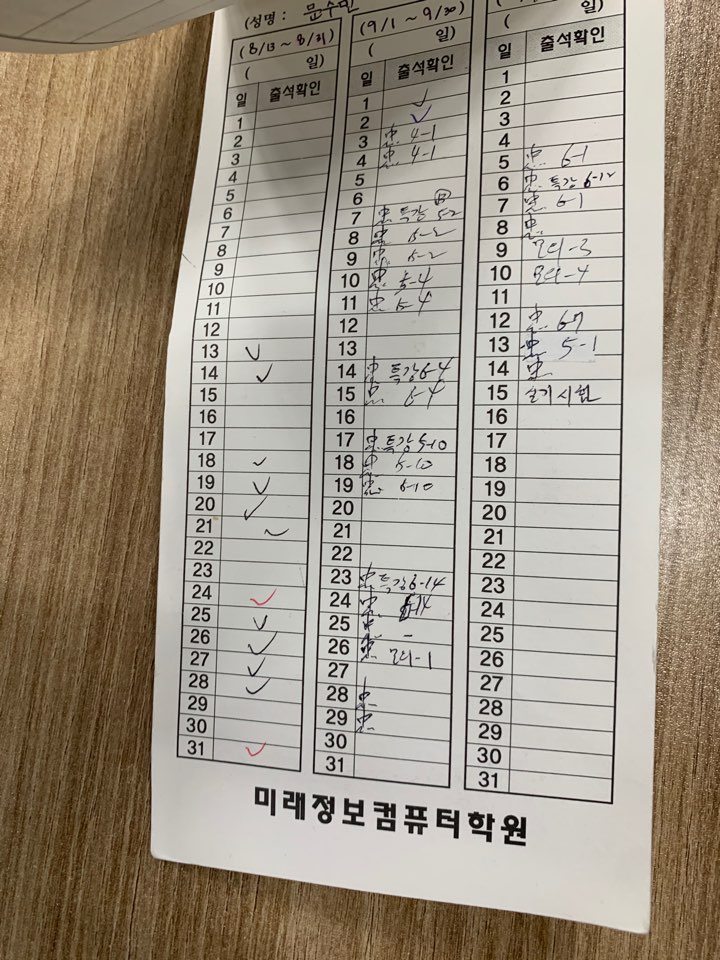 (성명 : 문수민
(8/13 ~ 8/31)
( 일)
일 출석확인
1
2
3
4
5
6
7
8
9
10
11
12
13 ✓
14 ✓
15
16
17
18 ✓
19 ✓
20 ✓
21 ✓
22
23
24 ✓
25 ✓
26 ✓
27 ✓
28 ✓
29
30
31 ✓
(9/1 ~ 9/30)
( 일)
일 출석확인
1 ✓
2 ✓
3 4-1
4 4-1
5
6
7 특강 5-2
8 5-2
9 5-2
10 5-4
11 5-4
12
13
14 특강 6-4
15 6-4
16
17 특강 5-10
18 5-10
19 5-10
20
21
22
23 특강 6-14
24 6-14
25 -
26 모의-1
27
28
29
30
31
( 일)
일 출석확인
1
2
3
4
5 6-1
6 특강 6-12
7 6-1
8
9 모의-3
10 모의-4
11
12 6-7
13 5-1
14
15 실기시험
16
17
18
19
20
21
22
23
24
25
26
27
28
29
30
31
미래정보컴퓨터학원